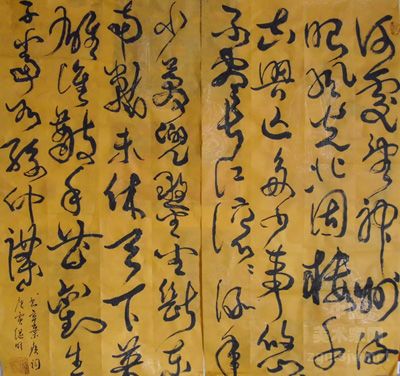 何處望神州滿
眼風光北固樓千
古興亡多少事悠〻
不盡長江滾〻流年
少萬兜鍪坐斷東
南戰未休天下英
雄誰敵手曹劉生
子當如孫仲謀
書辛棄疾詞
庚寅